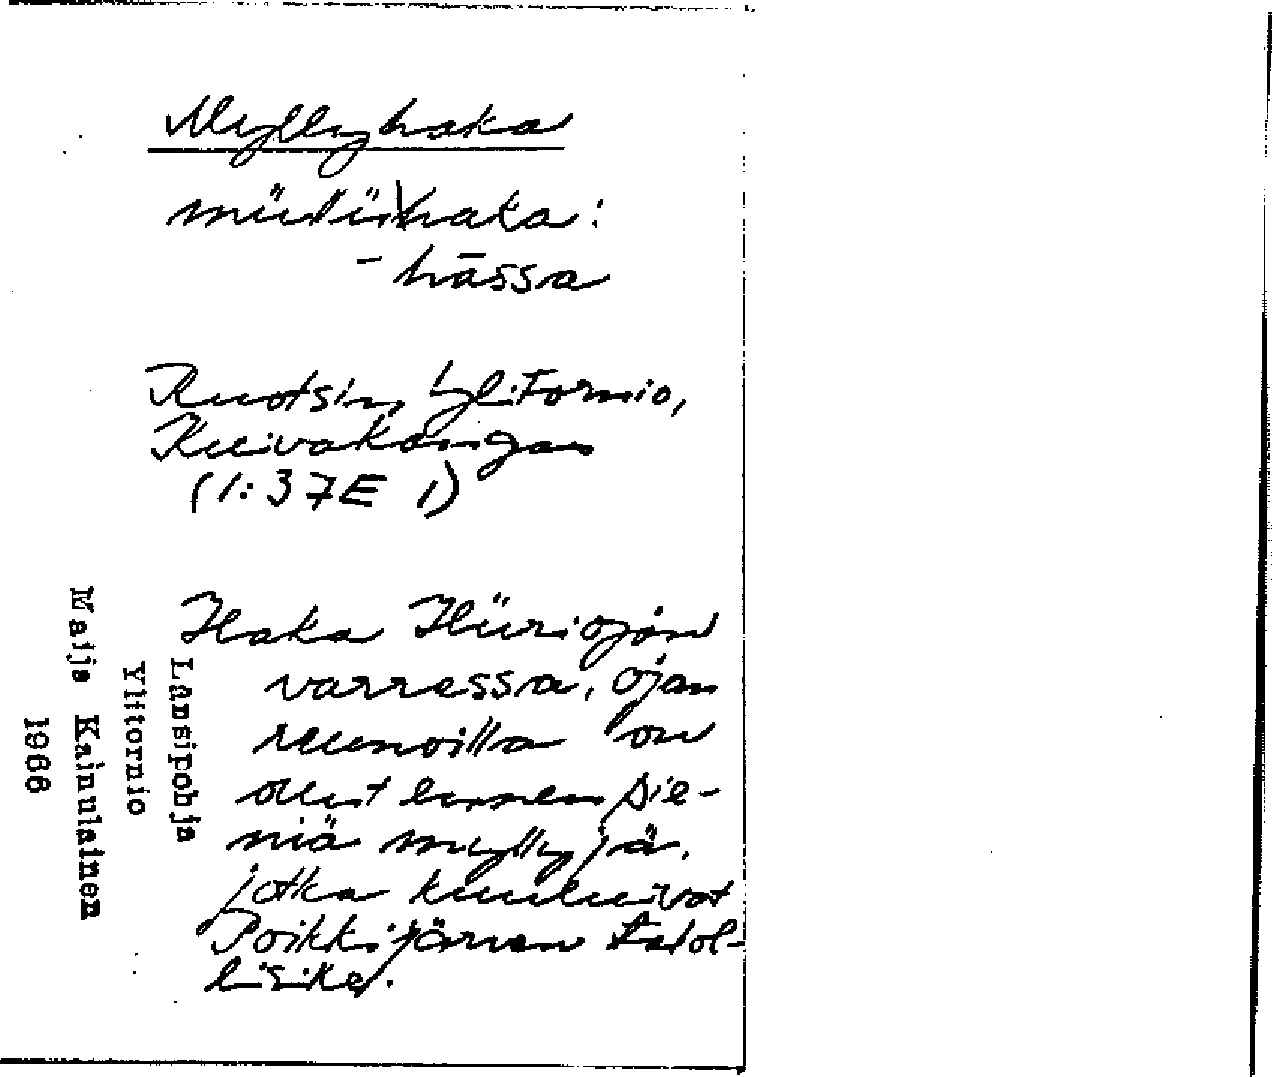 Myllyhaka
müllü\haka:
- hāssa
Ruotsin, Ylitornio,
Kuivakangas
(1:37E 1)
Haka Hüriojan
varressa, ojan
reunoilla on
ollut ennen pie-
niä myllyjä,
jotka kuuluivat
Poikkijärven talol-
lisike.
Länsipohja
Ylitornio
Maija Kainulainen
1966